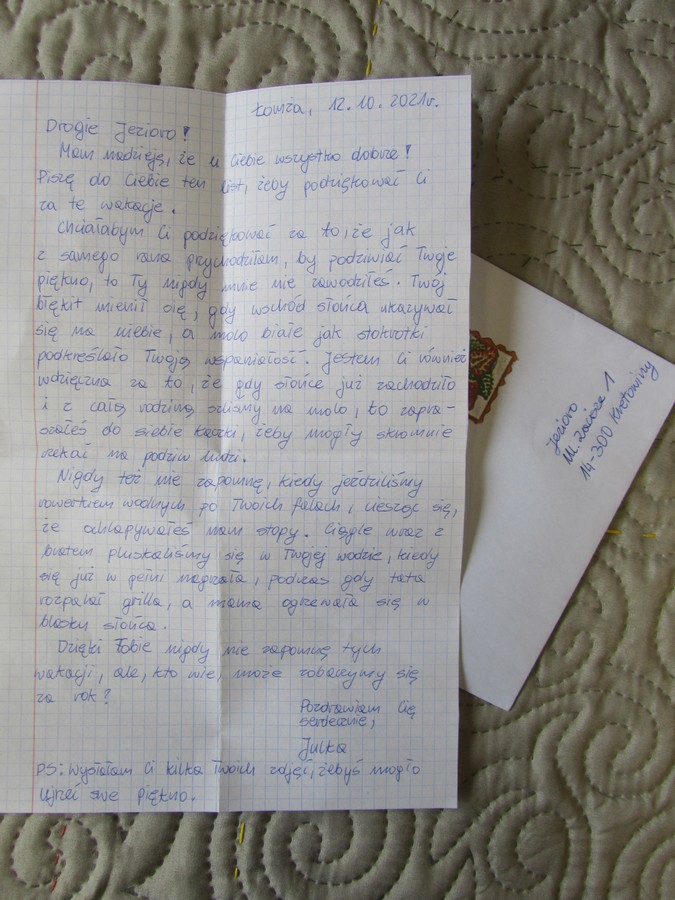 Łomża, 12.10.2021r.
Drogie Jezioro!
Mam nadzieję, że u Ciebie wszystko dobrze!
Piszę do Ciebie ten list, żeby podziękować Ci
za te wakacje.
Chciałabym Ci podziękować za to, że jak
z samego rana przychodziłam, by podziwiać Twoje
piękno, to Ty nigdy mnie nie zawodziłeś. Twój
błękit mienił się, gdy wschód słońca ukazywał
się na niebie, a molo białe jak stokrotki
podkreślało Twoją wspaniałość. Jestem Ci również
wdzięczna za to, że gdy słońce już zachodziło
i z całą rodziną szliśmy na molo, to zapra-
szałeś do siebie kaczki, żeby mogły skromnie
czekać na podziw ludzi.
Nigdy też nie zapomnę, kiedy jeździliśmy
rowerkiem wodnym po Twoich falach, ciesząc się,
że ochlapywałeś nam stopy. Ciągle wraz z
bratem pluskaliśmy się w Twojej wodzie, kiedy
się już w pełni nagrzała, podczas gdy tata
rozpalał grilla, a mama ogrzewała się w
blasku słońca.
Dzięki Tobie nigdy nie zapomnę tych
wakacji, ale, kto wie, może zobaczymy się
za rok?
Pozdrawiam Cię
serdecznie,
Julka
PS: Wysłałam Ci kilka Twoich zdjęć, żebyś mogło
ujrzeć swe piękno.
Jezioro
ul. Zacisze 1
14-300 Kretowiny